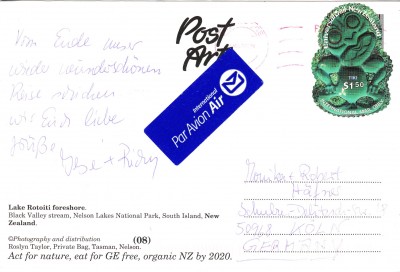 Vom Ende unser
wunderschönen
Reise senden
wir Euch liebe
Grüße
Post
Art
International
Par Avion Air
$1.50
Monika + Robert
50968 KÖLN
GERMANY
Lake Rotoiti foreshore.
Black Valley stream, Nelson Lakes National Park, South Island, New
Zealand.
©Photography and distribution (08)
Roslyn Taylor, Private Bag, Tasman, Nelson.
Act for nature, eat for GE free, organic NZ by 2020.